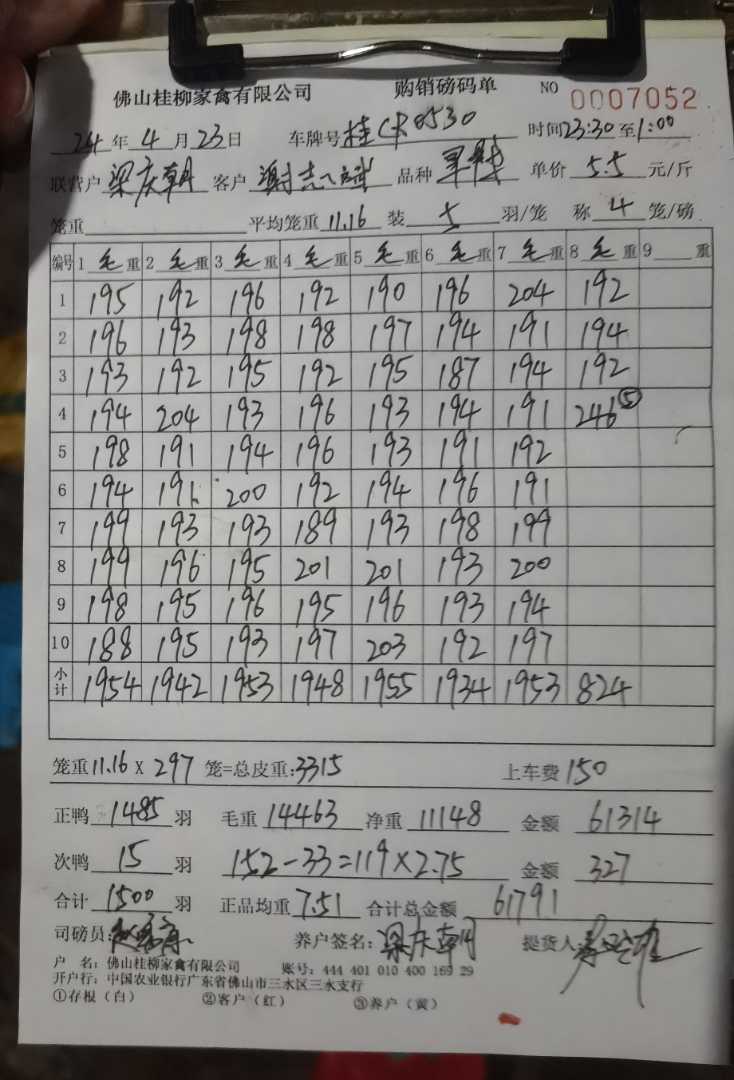 佛山桂柳家禽有限公司 购销磅码单 NO 0007052
24年4月23日 车牌号桂CR0530 时间23:30至1:00
联营户梁庆朝 客户谢志斌 品种 单价5.5元/斤
笼重 平均笼重11.16 装5羽/笼 称4笼/磅
编号 1毛重 2毛重 3毛重 4毛重 5毛重 6毛重 7毛重 8毛重 9重
1 195 192 196 192 190 196 204 192
2 196 193 198 198 197 194 191 194
3 193 192 195 192 195 187 194 192
4 194 204 193 196 193 194 191 246⑤
5 198 191 194 196 193 191 192
6 194 191 200 192 194 196 191
7 199 193 193 189 193 198 199
8 199 196 195 201 201 193 200
9 198 195 196 195 196 193 194
10 188 195 193 197 203 192 197
小计 1954 1942 1953 1948 1955 1934 1953 824
笼重11.16X297笼=总皮重:3315 上车费150
正鸭1485羽 毛重14463 净重11148 金额61314
次鸭15羽 152-33=119×2.75 金额327
合计1500羽 正品均重7.51 合计总金额61791
司磅员: 养户签名:梁庆朝 提货人
户 名:佛山桂柳家禽有限公司 账号:444 401 010 400 169 29
开户行:中国农业银行广东省佛山市三水区三水支行
①存根(白) ②客户(红) ③养户(黄)